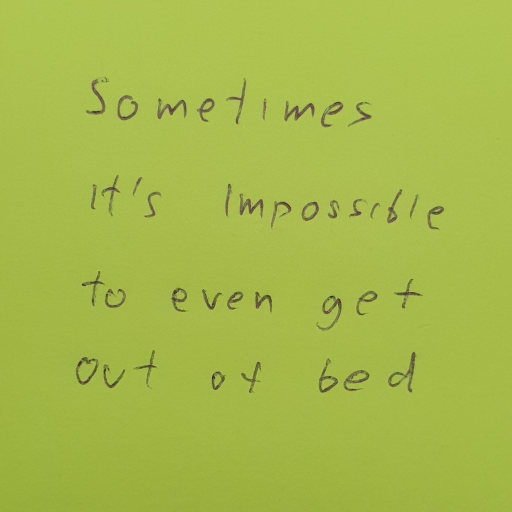 Sometimes
It's Impossible
to even get
out of bed